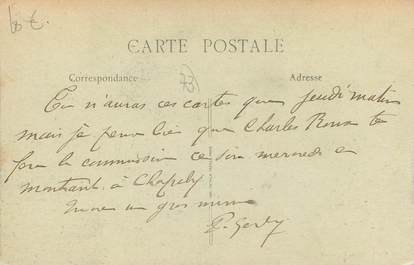 60 €
CARTE POSTALE
Correspondance
73
Adresse
Tu n'auras ces cartes que jeudi matin
mais je pense bien que Charles te
fera la commission ce soir mercredi en
montant à
un gros